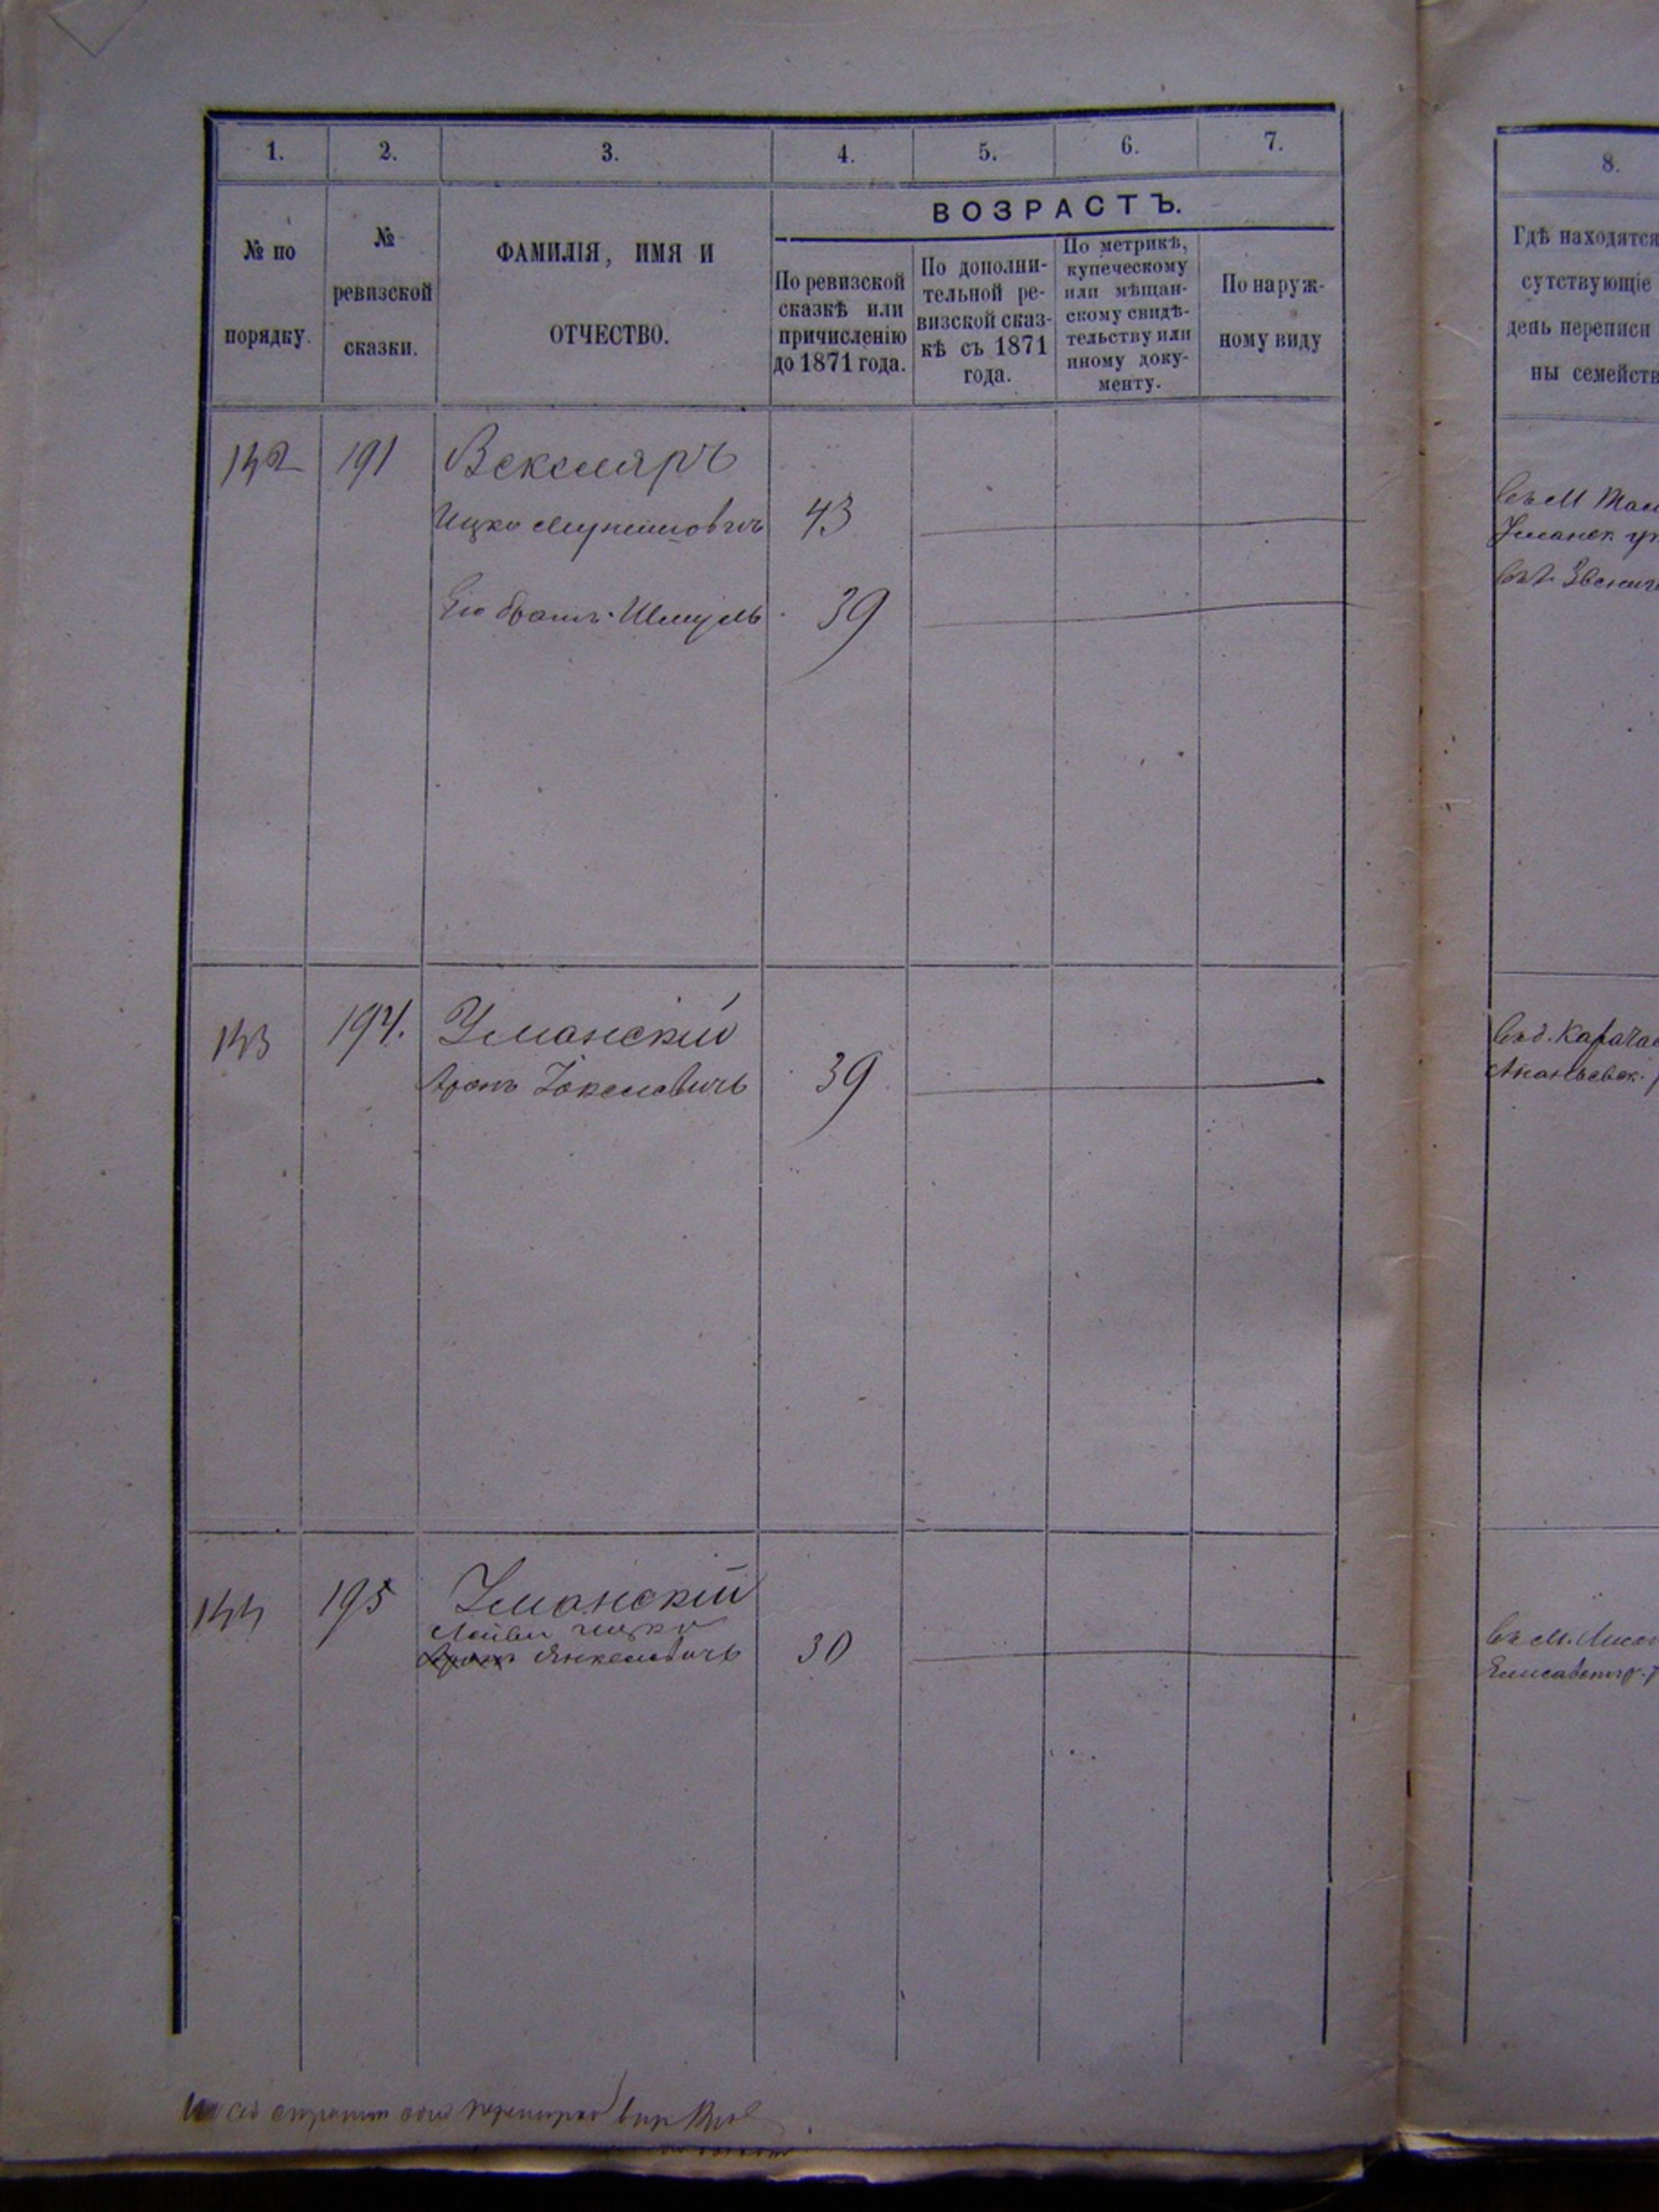 1. 2. 3. 4. 5. 6. 7.
№ по порядку.
№ ревизской сказки.
ФАМИЛІЯ, ИМЯ И
ОТЧЕСТВО.
ВОЗРАСТЪ.
По ревизской
сказкѣ или
причисленію
до 1871 года.
По дополни-
тельной ре-
визской сказ-
кѣ съ 1871
года.
По метрикѣ,
купеческому
или мѣщан-
скому свидѣ-
тельству или
иному доку-
менту.
По наруж-
ному виду
142 191 Векслярь
Ицко 43
Его братъ Шмуль 39
143 194. Уманскій
Аронъ 39
144 195 Уманскій
Лейви Ицко
Аронъ Янкелевичъ 30
8.
Гдѣ находятся
сутствующіе
день переписи
ны семейств
Въ М
Уманск
Звениг
Въ д.
Ананьевск.
Въ М.
Елисаветгр.